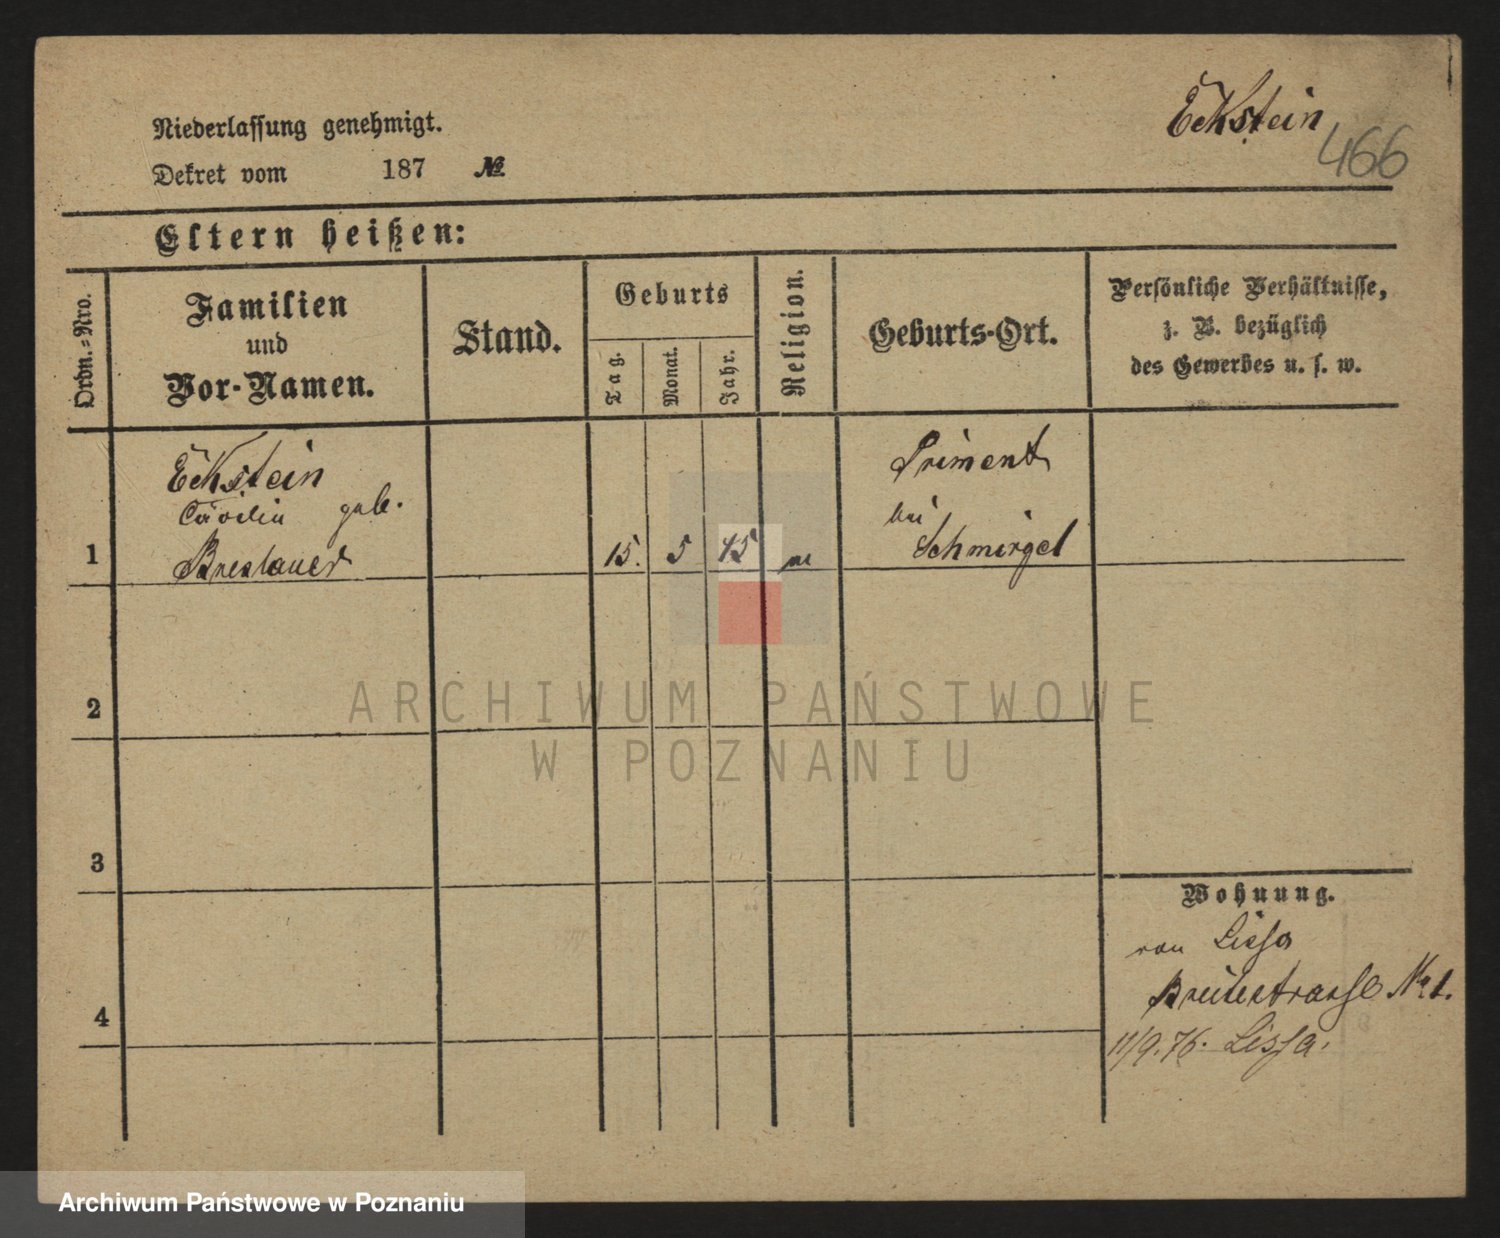 Niederlassung genehmigt.
Eckstein
466
Dekret vom 187 №
Eltern heißen:
Ordn.-Nro.
Familien
und
Vor-Namen.
Stand.
Geburts
Tag.
Monat.
Jahr.
Religion.
Geburts-Ort.
Persönliche Verhältnisse,
z. B. bezüglich
des Gewerbes u. s. w.
1
Eckstein
Cäcilia geb.
Breslauer
15. 5 45
Priment
bei
Schmirgel
2
3
4
Wohnung.
von Lissa
Breitestrasse No 1.
11/9. 76. Lissa.
ARCHIWUM PAŃSTWOWE
W POZNANIU
Archiwum Państwowe w Poznaniu